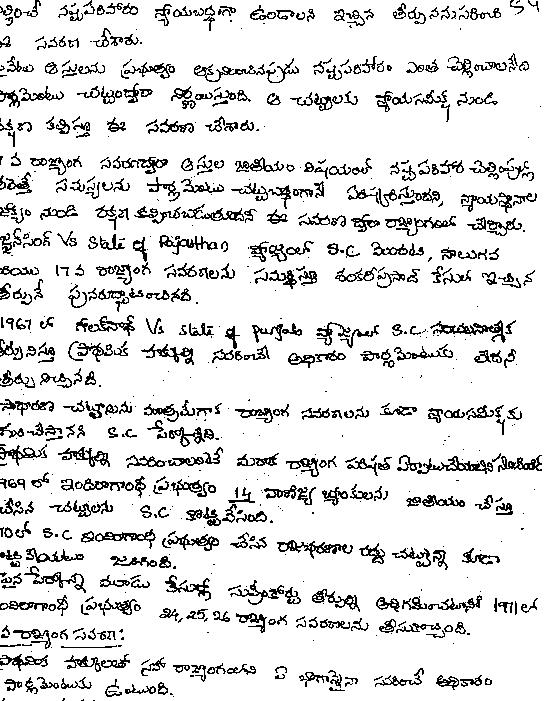 నష్టపరిహారం న్యాయబద్ధంగా ఉండాలని ఇచ్చిన తీర్పుననుసరించి 54
ఈ సవరణ చేశారు.
ఆస్తులను ప్రభుత్వం ఆక్రమించినపుడు నష్టపరిహారం ఎంత చెల్లించాలనేది
పార్లమెంటు చట్టంద్వారా నిర్ణయిస్తుంది. ఆ చట్టాలకు న్యాయసమీక్ష నుండి
రక్షణ కల్పిస్తూ ఈ సవరణ చేశారు.
వ రాజ్యాంగ సవరణద్వారా ఆస్తుల జాతీయం విషయంలో నష్టపరిహార చెల్లింపుల్లో
సమస్యలను పార్లమెంటు చట్టబద్ధంగానే పరిష్కరిస్తుందని, న్యాయస్థానాల
జోక్యం నుండి రక్షణ ఈ సవరణ ద్వారా రాజ్యాంగంలో చేర్చారు.
సజ్జన్‌సింగ్ Vs State of Rajasthan వ్యాజ్యంలో S.C మొదటి, నాలుగవ
మరియు 17 వ రాజ్యాంగ సవరణలను సమర్థిస్తూ శంకరీప్రసాద్ కేసులో ఇచ్చిన
తీర్పునే పునరుద్ఘాటించినది.
1967 లో గోలక్‌నాథ్ Vs State of Punjab వ్యాజ్యంలో S.C సంచలనాత్మక
తీర్పునిస్తూ ప్రాథమిక హక్కుల్ని సవరించే అధికారం పార్లమెంటుకు లేదని
తీర్పు నిచ్చినది.
సాధారణ చట్టాలను మాత్రమేగాక రాజ్యాంగ సవరణలను కూడా న్యాయసమీక్షకు
గురిచేస్తానని S.C పేర్కొన్నది.
ప్రాథమిక హక్కుల్ని సవరించాలంటే మరొక రాజ్యాంగ పరిషత్ ఏర్పాటుచేయాలని
1969 లో ఇందిరాగాంధీ ప్రభుత్వం 14 వాణిజ్య బ్యాంకులను జాతీయం చేస్తూ
చేసిన చట్టాలను S.C కొట్టివేసింది.
1970లో S.C ఇందిరాగాంధీ ప్రభుత్వం చేసిన రాజభరణాల రద్దు చట్టాన్ని కూడా
కొట్టివేయటం జరిగింది.
పైన పేర్కొన్న మూడు కేసుల్లో సుప్రీంకోర్టు తీర్పుల్ని అధిగమించటానికి 1971లో
ఇందిరాగాంధీ ప్రభుత్వం 24, 25, 26 రాజ్యాంగ సవరణలను తీసుకొచ్చింది.
వ రాజ్యాంగ సవరణ:
ప్రాథమిక హక్కులతో సహా రాజ్యాంగంలోని ఏ భాగాన్నైనా సవరించే అధికారం
పార్లమెంటుకు ఉంటుంది.